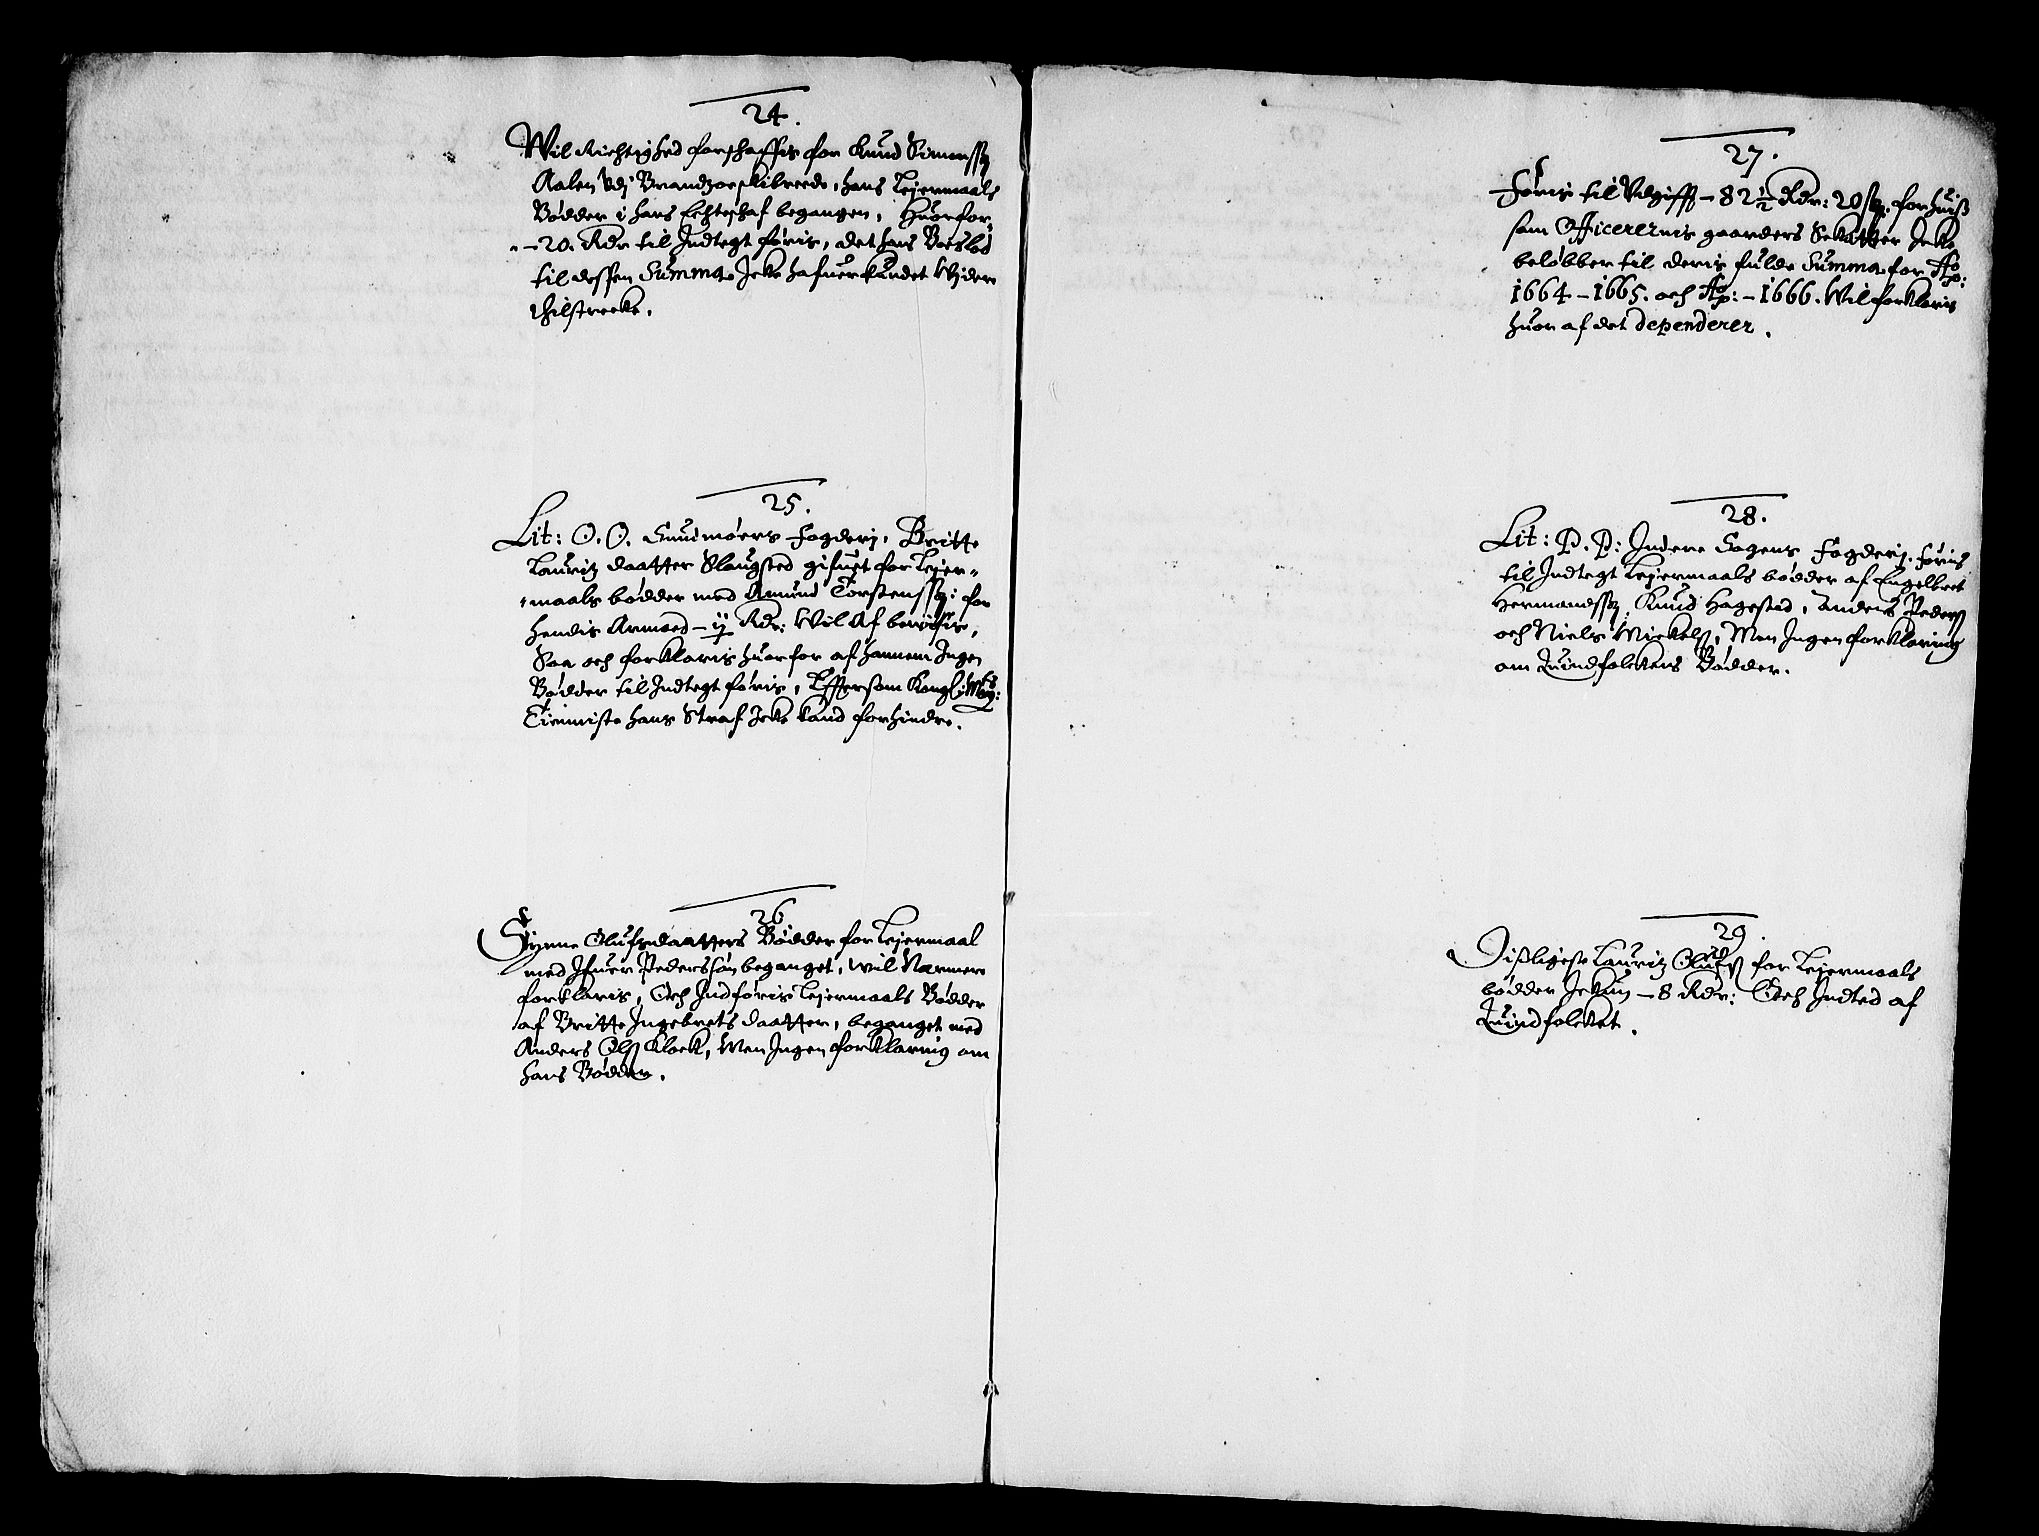 24.
Wil Richtighed forschaffis for Knud Simenssøn
Aalen Vdj Brandzoeskibrede, hans Lejermaals
Bødder i hans Echteschaf begangen, Huorfor
-20. Rdr til Indtegt føris, det hans Boeslod
til dessen Summa Icke hafuer kundet Wjdere
thilstrecke.
25.
Lit: O. O. Sundmøers Fogderj, Britte
Lauritz daatter Slaugsted gifuet for Lejer-
maals bødder med Amund Torstenssøn: for
hendis Armoed - ij Rdr: Wil Af beuisis,
Saa och forklaris huorfor af hannem Ingen
Bødder til Indtegt føris, Effersom Kongl: Mayts:
Tienniste hans Straf Icke kand forhindre.
26
Synne Olufsdaatters Bødder for Lejermaal
med Ifuer Pederssøn beganget, wil Nærmere
forklaris, Och Indføris Lejermaals Bødder
af Britte Ingebrets daatter, beganget med
Anders Olß Klock, Men Ingen forklaring om
hans Bødder.
27.
Føris til Vdgifft - 82½ Rdr: 20 ß: for huiß
som Officerernis gaarders Skatter Icke
beløbber til deris fulde Summa for Ao:
1664 - 1665. och Ao: - 1666. Wil forklaris
huor af det dependerer.
28.
Lit: P. P: Indere Sogens Fogderj. Føris
til Indtegt Lejermaals bødder af Engelbret
Hermandssøn, Knud Hagested, Anders Pederß
och Niels Mickelß, Men Ingen forklaring
om Quindfolckens Bødder.
29.
Dißligeste Lauritz Olufß for Lejermaals
bødder Ickun - 8 Rdr: Och Indted af
Quindfolcket.